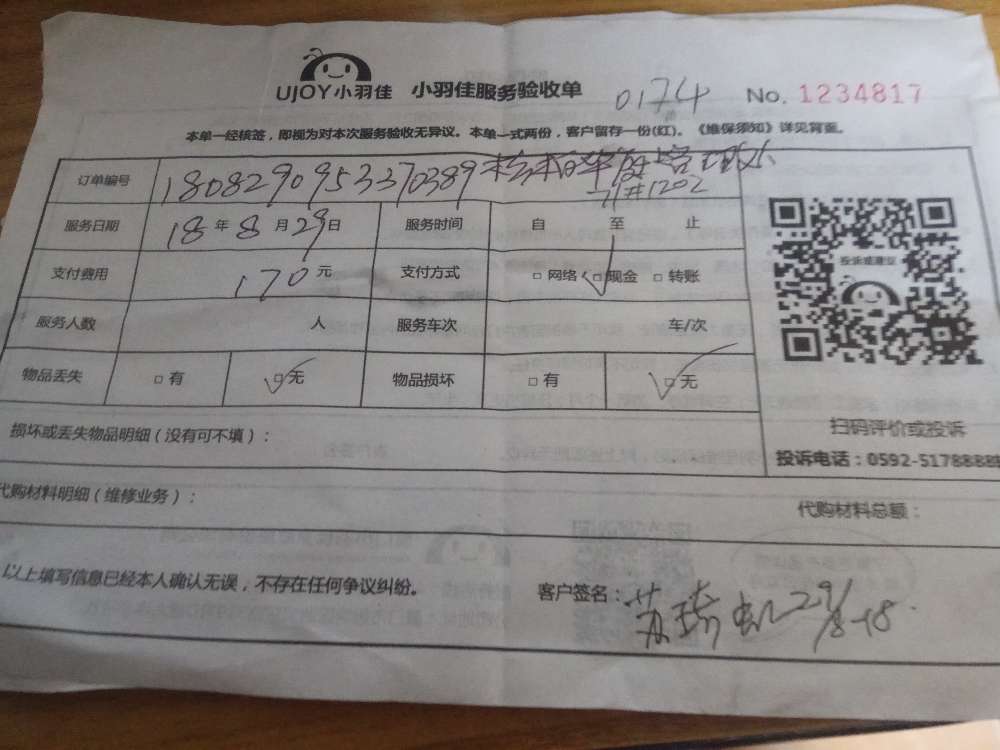 UJOY小羽佳 小羽佳服务验收单 0174 No. 1234817
本单一经核签，即视为对本次服务验收无异议。本单一式两份，客户留存一份(红)。《维保须知》详见背面。
订单编号 1808290953370389
71#1202
服务日期 18 年 8 月 29 日 服务时间 自 至 止
支付费用 170 元 支付方式 □ 网络 □ 现金 □ 转账
服务人数 人 服务车次 车/次
物品丢失 □ 有 □ 无 物品损坏 □ 有 □ 无
投诉或建议
扫码评价或投诉
投诉电话：0592-5178888
损坏或丢失物品明细（没有可不填）：
代购材料明细（维修业务）： 代购材料总额：
以上填写信息已经本人确认无误，不存在任何争议纠纷。 客户签名：苏 29/8-18.